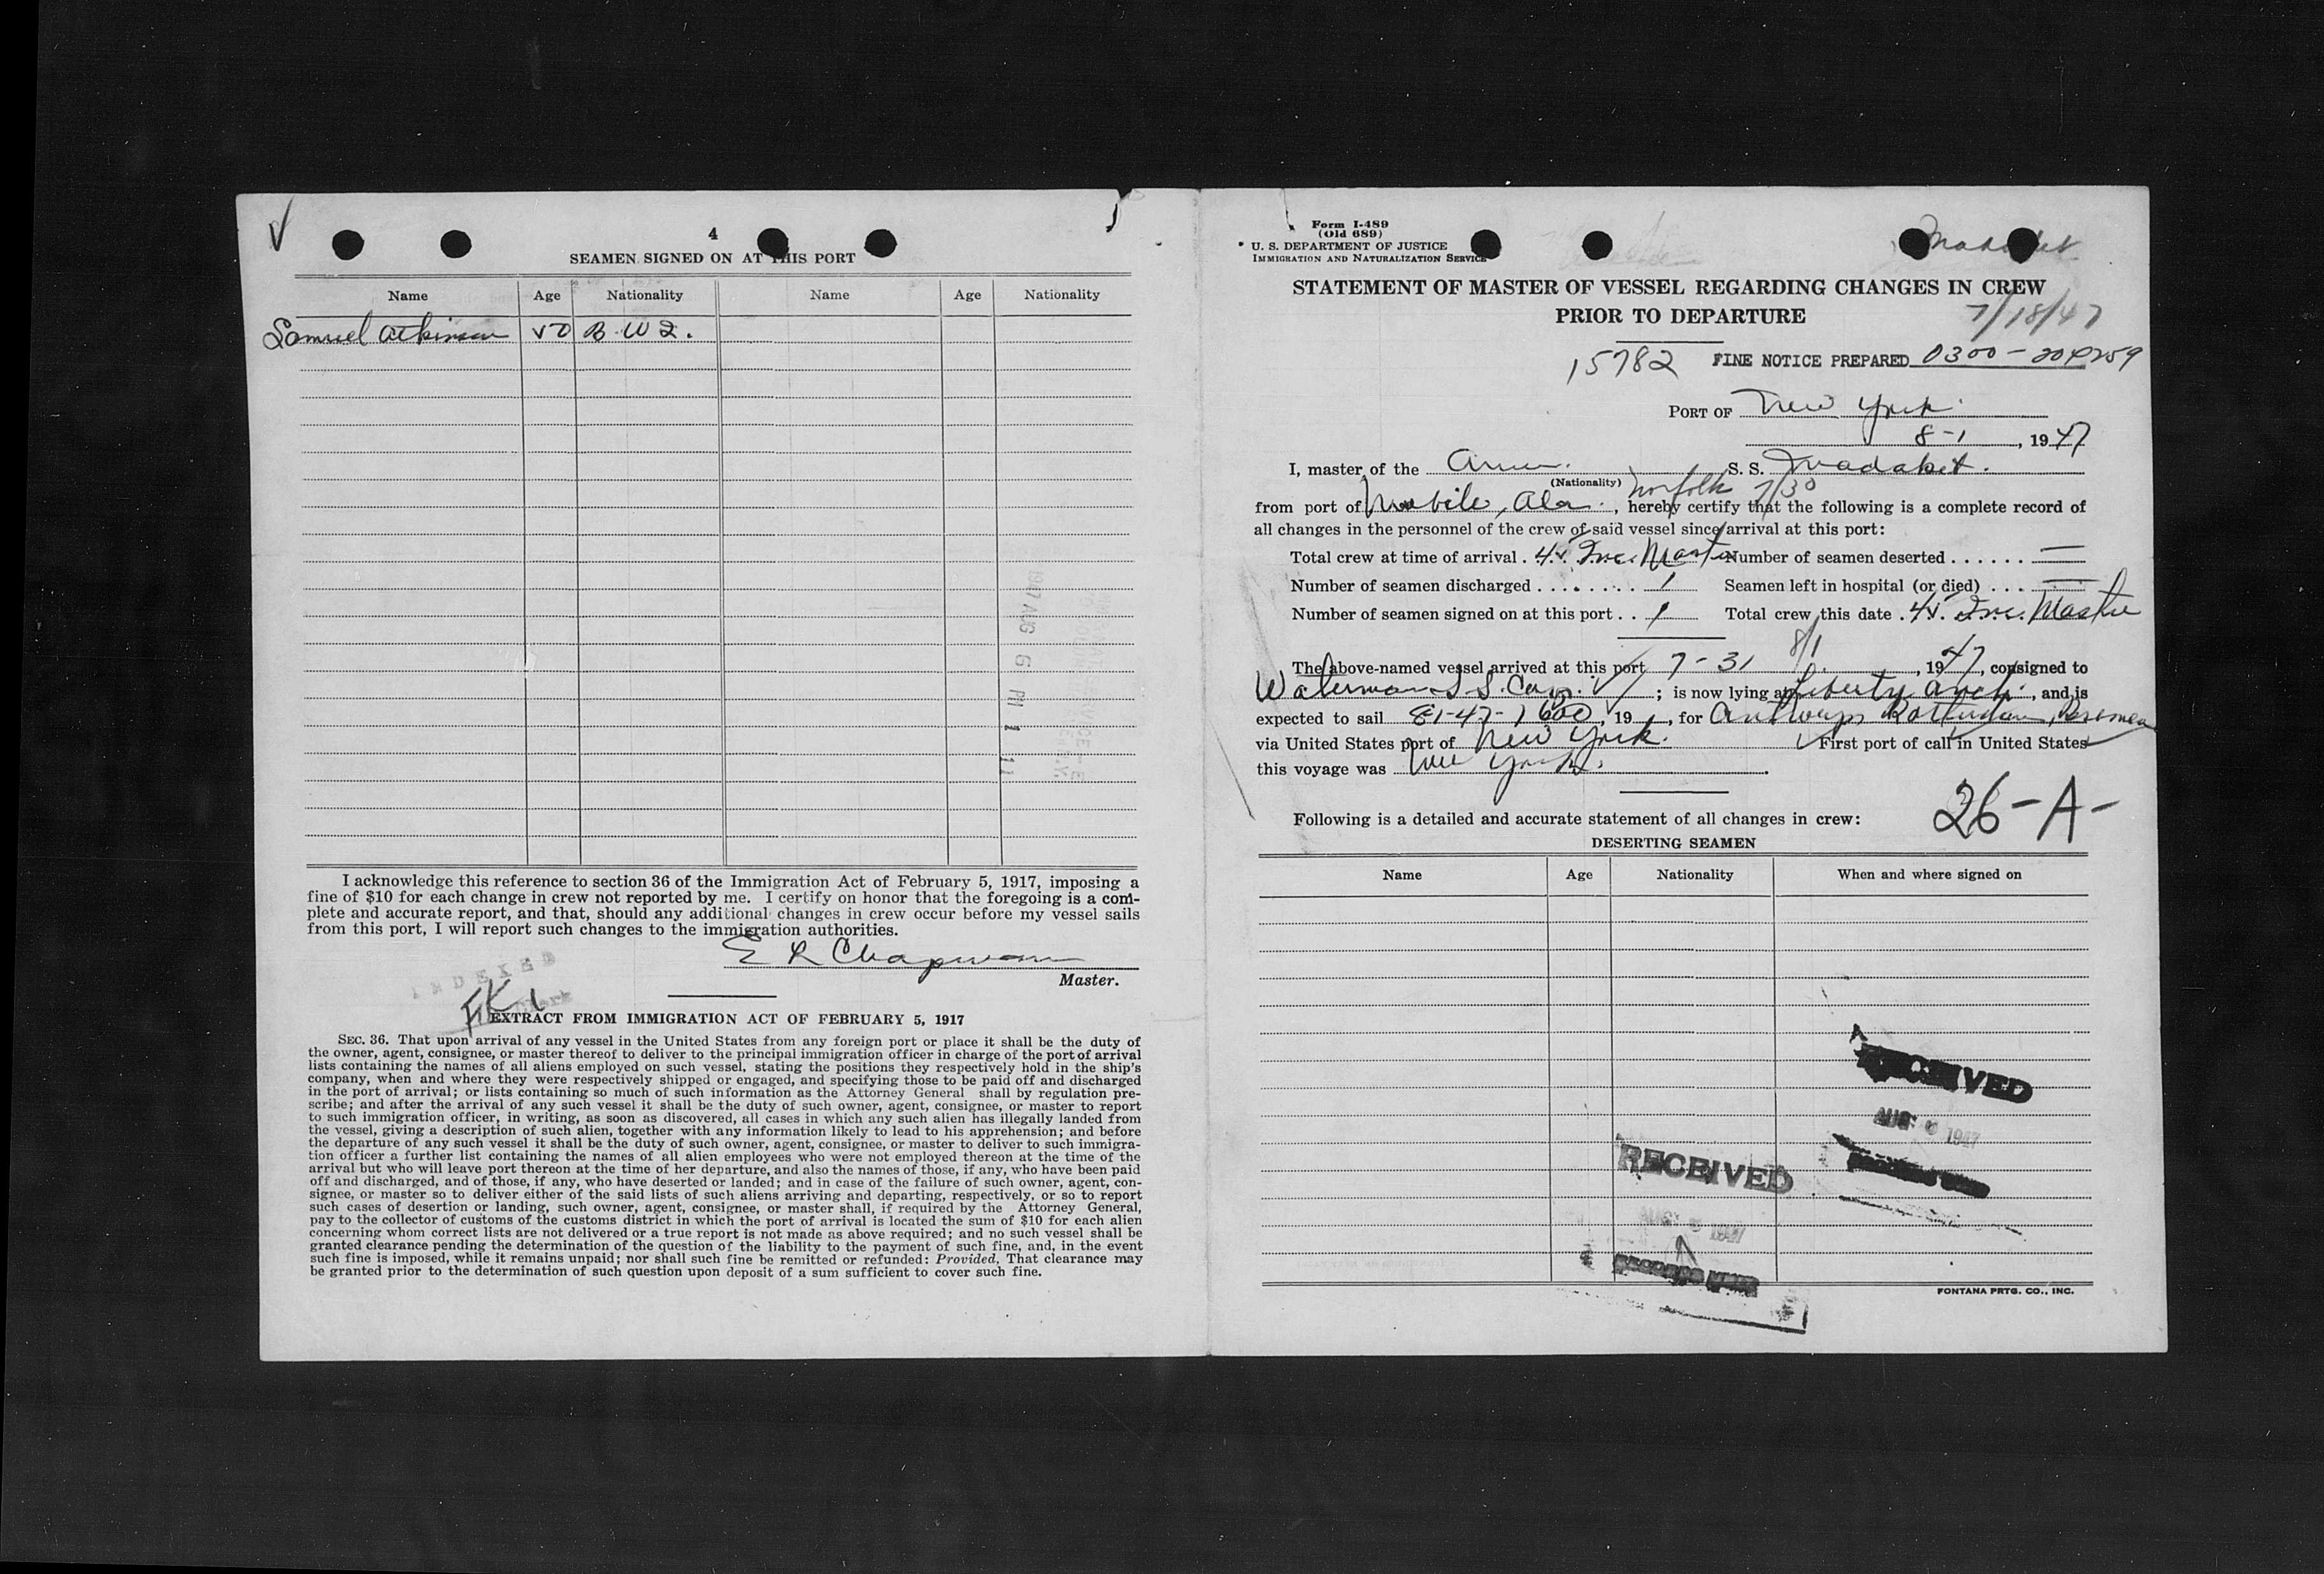 4
SEAMEN SIGNED ON AT THIS PORT
Name Age Nationality Name Age Nationality
Samuel Atkinson 50 B.W.I.
I acknowledge this reference to section 36 of the Immigration Act of February 5, 1917, imposing a
fine of $10 for each change in crew not reported by me. I certify on honor that the foregoing is a com-
plete and accurate report, and that, should any additional changes in crew occur before my vessel sails
from this port, I will report such changes to the immigration authorities.
E R Chapman
Master.
INDEXED
EXTRACT FROM IMMIGRATION ACT OF FEBRUARY 5, 1917
SEC. 36. That upon arrival of any vessel in the United States from any foreign port or place it shall be the duty of
the owner, agent, consignee, or master thereof to deliver to the principal immigration officer in charge of the port of arrival
lists containing the names of all aliens employed on such vessel, stating the positions they respectively hold in the ship's
company, when and where they were respectively shipped or engaged, and specifying those to be paid off and discharged
in the port of arrival; or lists containing so much of such information as the Attorney General shall by regulation pre-
scribe; and after the arrival of any such vessel it shall be the duty of such owner, agent, consignee, or master to report
to such immigration officer, in writing, as soon as discovered, all cases in which any such alien has illegally landed from
the vessel, giving a description of such alien, together with any information likely to lead to his apprehension; and before
the departure of any such vessel it shall be the duty of such owner, agent, consignee, or master to deliver to such immigra-
tion officer a further list containing the names of all alien employees who were not employed thereon at the time of the
arrival but who will leave port thereon at the time of her departure, and also the names of those, if any, who have been paid
off and discharged, and of those, if any, who have deserted or landed; and in case of the failure of such owner, agent, con-
signee, or master so to deliver either of the said lists of such aliens arriving and departing, respectively, or so to report
such cases of desertion or landing, such owner, agent, consignee, or master shall, if required by the Attorney General,
pay to the collector of customs of the customs district in which the port of arrival is located the sum of $10 for each alien
concerning whom correct lists are not delivered or a true report is not made as above required; and no such vessel shall be
granted clearance pending the determination of the question of the liability to the payment of such fine, and, in the event
such fine is imposed, while it remains unpaid; nor shall such fine be remitted or refunded: Provided, That clearance may
be granted prior to the determination of such question upon deposit of a sum sufficient to cover such fine.
Form I-489
(Old 689)
U. S. DEPARTMENT OF JUSTICE
IMMIGRATION AND NATURALIZATION SERVICE
Madaket
STATEMENT OF MASTER OF VESSEL REGARDING CHANGES IN CREW
PRIOR TO DEPARTURE
7/18/47
15782 FINE NOTICE PREPARED 0300-
PORT OF New York
8-1, 1947
I, master of the Amer. S. S. Madaket.
(Nationality) Norfolk 7/30
from port of Mobile, Ala., hereby certify that the following is a complete record of
all changes in the personnel of the crew of said vessel since arrival at this port:
Total crew at time of arrival . 45 Inc. Master Number of seamen deserted . . . . . . —
Number of seamen discharged . . . . . . . . 1 Seamen left in hospital (or died) . . . —
Number of seamen signed on at this port . . 1 Total crew this date . 45 Inc. Master
8/1
The above-named vessel arrived at this port 7-31, 1947, consigned to
Waterman S.S. Corp.; is now lying at Liberty Anch., and is
expected to sail 8-1-47-1600, 19 , for Antwerp Rotterdam, Bremen
via United States port of New York. First port of call in United States
this voyage was New York.
26-A-
Following is a detailed and accurate statement of all changes in crew:
DESERTING SEAMEN
Name Age Nationality When and where signed on
RECEIVED
AUG 1947
RECEIVED
AUG 1947
FONTANA PRTG. CO., INC.